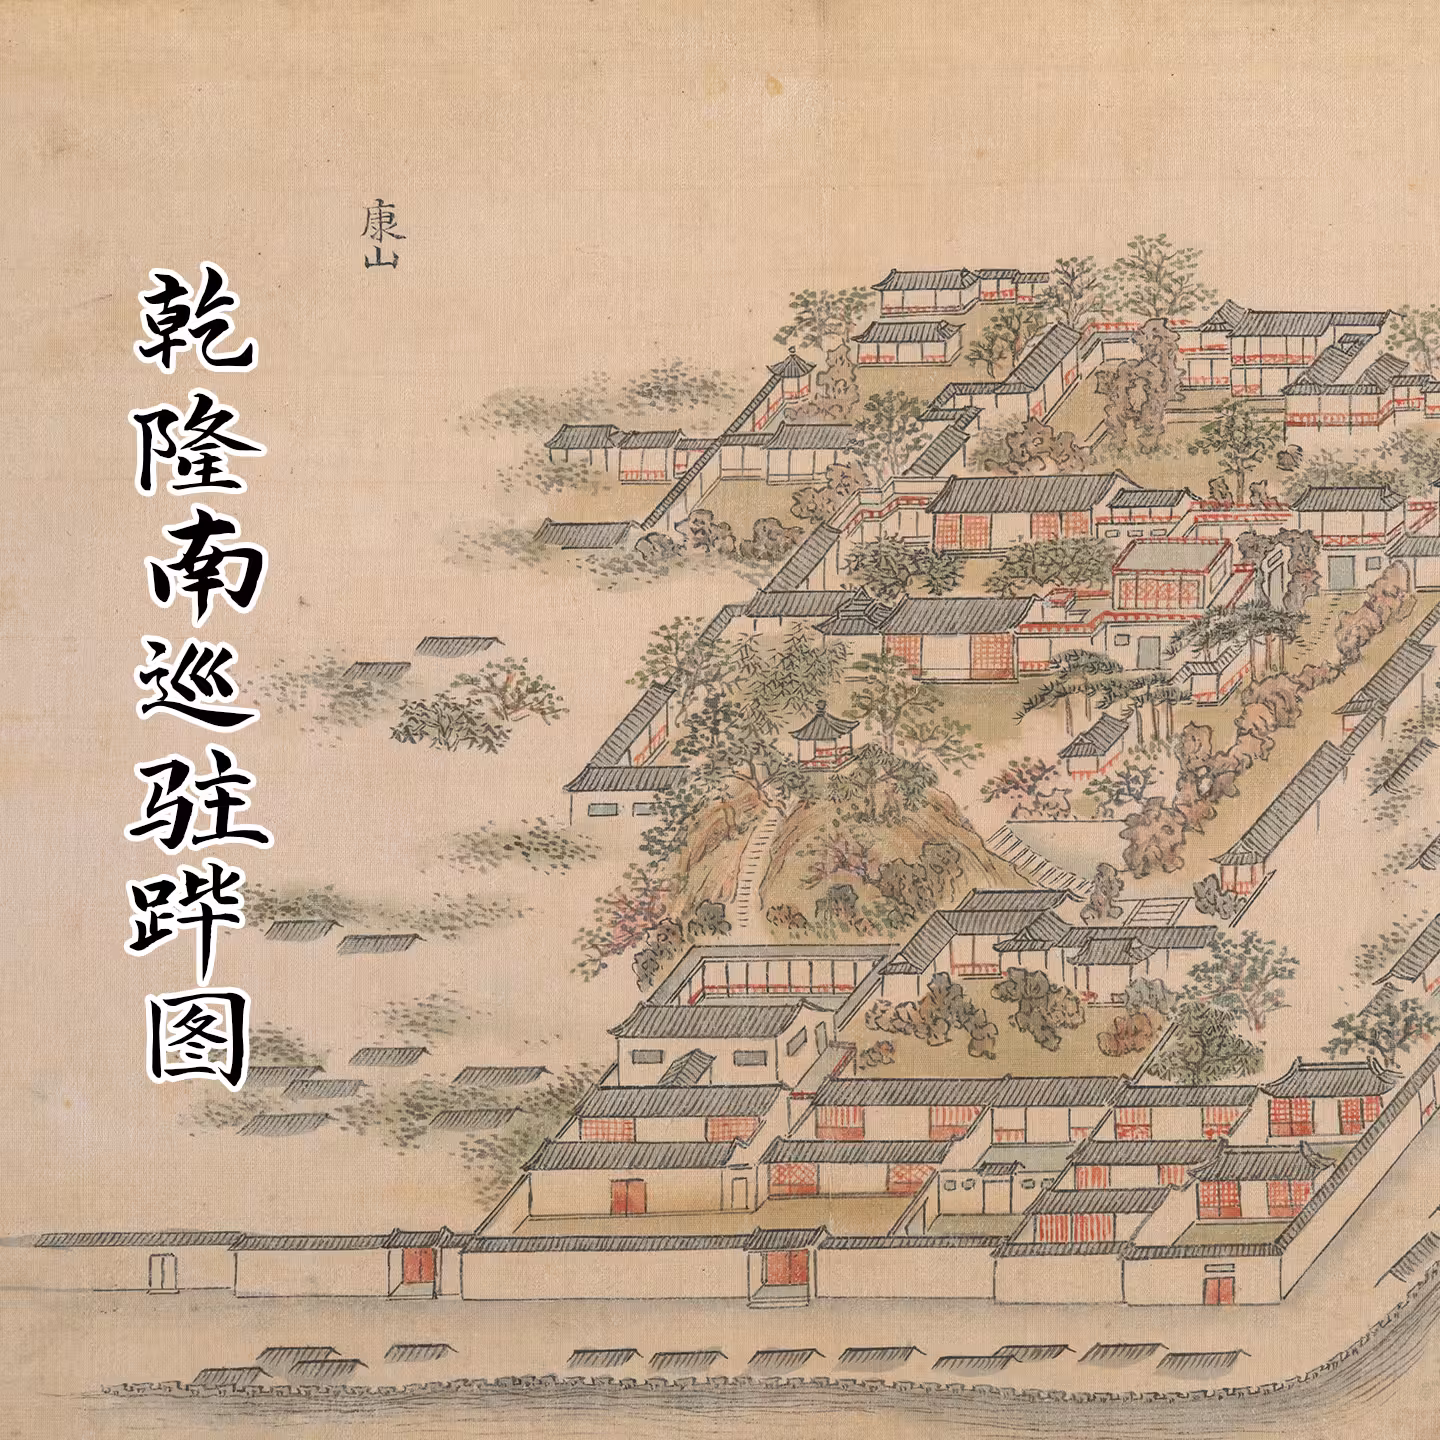 康山
乾隆南巡驻跸图